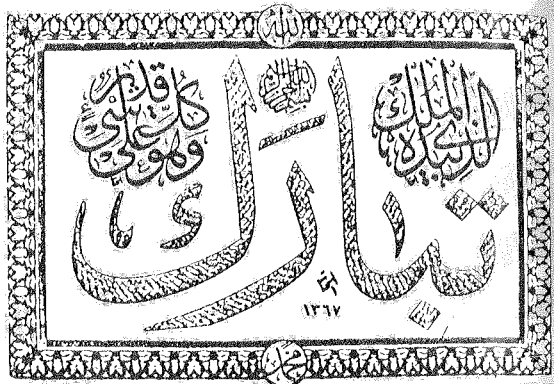 الله
بسم الله الرحمن الرحيم
تبارك
الذي بيده الملك
وهو على كل شيء قدير
١٣٦٧
محمد